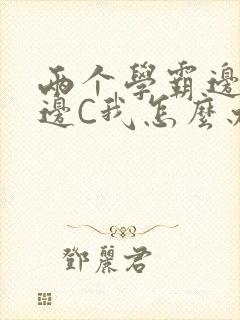 兩个學霸邊
邊C我怎麼
鄧麗君